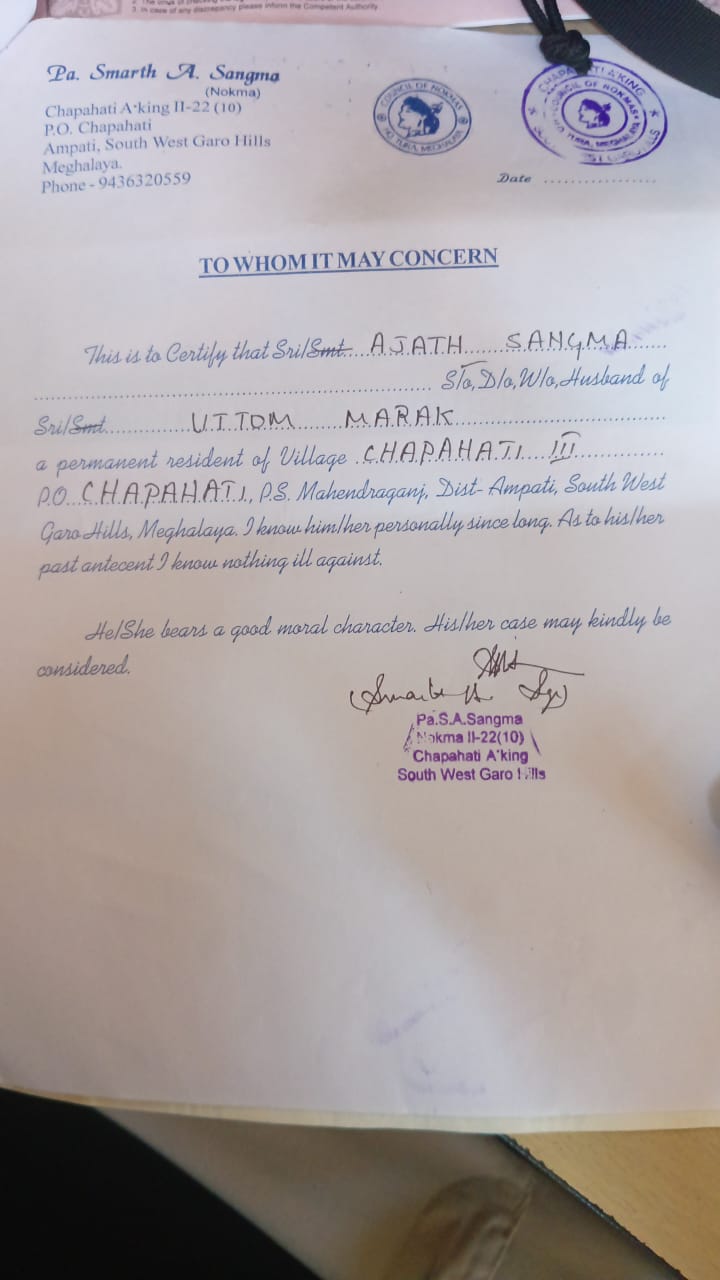 3. In case of any discrepancy please inform the Competent Authority.
Pa. Smarth A. Sangma
(Nokma)
Chapahati A'king II-22 (10)
P.O. Chapahati
Ampati, South West Garo Hills
Meghalaya.
Phone - 9436320559
COUNCIL OF NOKMAS
HQ TURA, MEGHALAYA
CHAPAHATI A'KING
COUNCIL OF NOKMAS
HQ TURA, MEGHALAYA
SOUTH WEST GARO HILLS
Date ....................
TO WHOM IT MAY CONCERN
This is to Certify that Sri/Smt... AJATH ...... SANGMA ......
.......................................................... S/o, D/o, W/o, Husband of
Sri/Smt.............. UTTOM ...... MARAK ....................................
a permanent resident of Village . CHAPAHATI III ..............
P.O. CHAPAHATI., P.S. Mahendraganj, Dist- Ampati, South West
Garo Hills, Meghalaya. I know him/her personally since long. As to his/her
past antecent I know nothing ill against.
He/She bears a good moral character. His/her case may kindly be
considered.
Pa.S.A.Sangma
Nokma II-22(10)
Chapahati A'king
South West Garo Hills